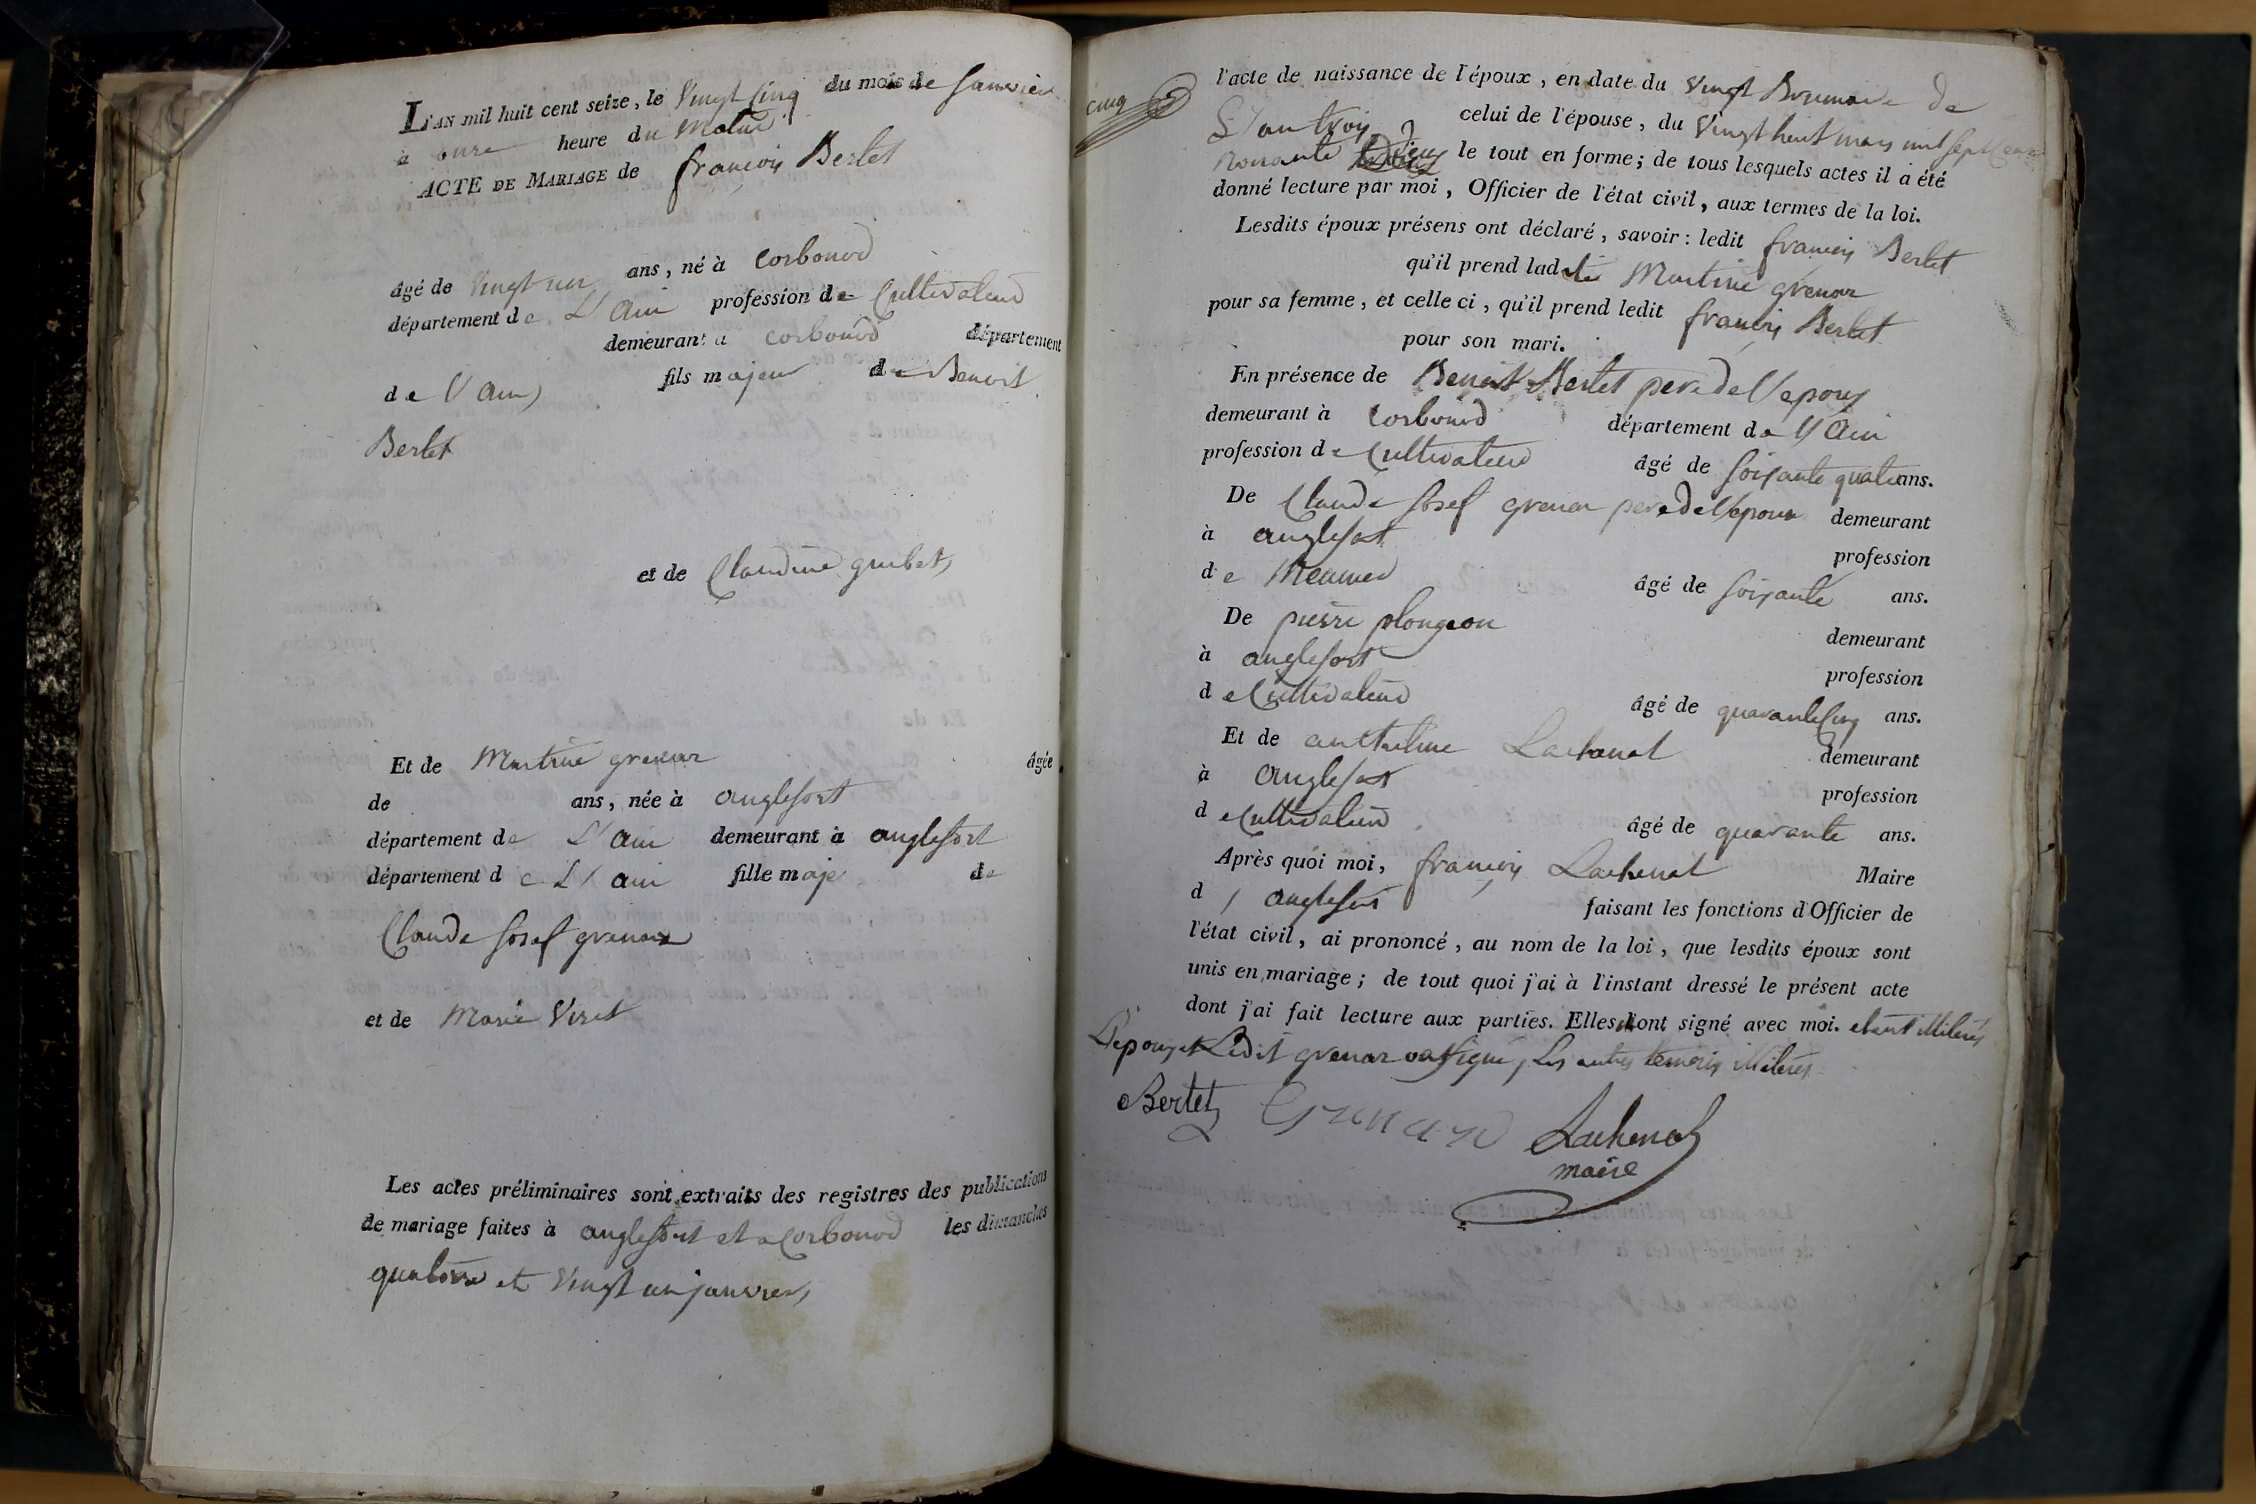 L'AN mil huit cent seize, le Vingt Cinq du mois de Janvier
à onze heure du Matin
ACTE DE MARIAGE de francois Bertet
âgé de Vingt un ans, né à Corbonod
département de L'Ain profession de Cultivateur
demeurant a Corbonod département
de l'Ain fils majeur de Benoit
Bertet
et de Claudine guibet
Et de Martine grenar âgée
de ans, née à anglefort
département de L'ain demeurant à anglefort
département de L'ain fille maje de
Claude Josef grenar
et de Marie Viret
Les actes préliminaires sont extraits des registres des publications
de mariage faites à anglefort et a Corbonod les dimanches
quatorze et Vingt un janvier,
cinq
l'acte de naissance de l'époux, en date du Vingt Brumaire de
L'an trois celui de l'épouse, du Vingt huit mars mil sept Cent
nonante deux le tout en forme; de tous lesquels actes il a été
donné lecture par moi, Officier de l'état civil, aux termes de la loi.
Lesdits époux présens ont déclaré, savoir: ledit francois Bertet
qu'il prend ladite Martine grenar
pour sa femme, et celle ci, qu'il prend ledit francois Bertet
pour son mari.
En présence de Benoit Bertet pere de l'epoux
demeurant à Corbonod département de l'Ain
profession de Cultivateur âgé de soixante quatre ans.
De Claude Josef grenar pere de l'epouse demeurant
à anglefort profession
de Meunier âgé de soixante ans.
De pierre plongeon demeurant
à anglefort profession
de Cultivateur âgé de quarante Cinq ans.
Et de anthelme Lachenal demeurant
à anglefort profession
de Cultivateur âgé de quarante ans.
Après quoi moi, francois Lachenal Maire
d' anglefort faisant les fonctions d'Officier de
l'état civil, ai prononcé, au nom de la loi, que lesdits époux sont
unis en mariage; de tout quoi j'ai à l'instant dressé le présent acte
dont j'ai fait lecture aux parties. Elles n'ont signé avec moi. etant illiterés
L'epoux et Ledit grenar ont signé, Les autres temoins illiterés
Bertet Grenard Lachenal
maire